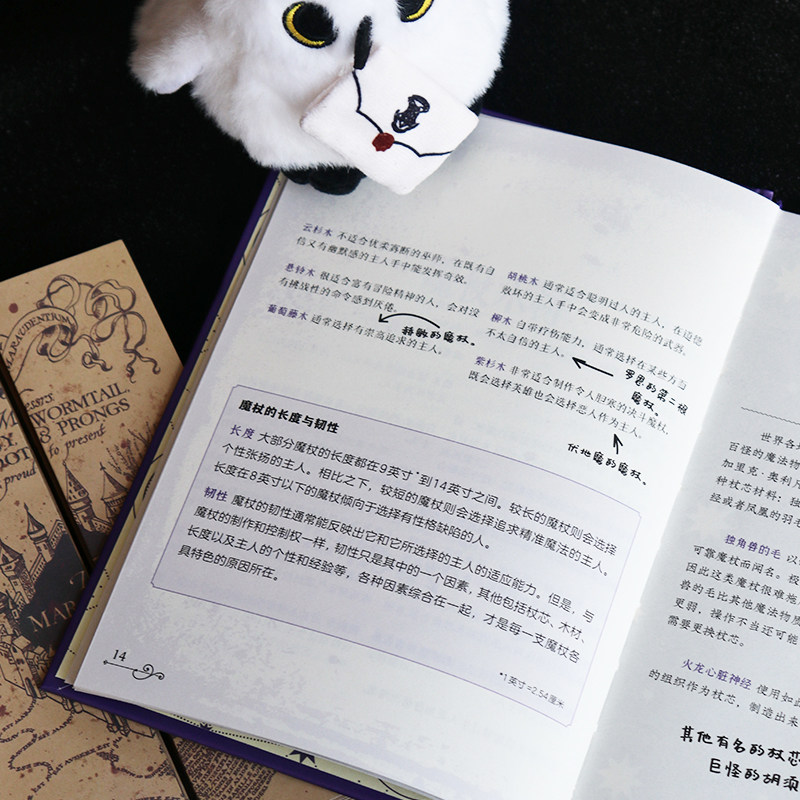 云杉木 不适合优柔寡断的巫师，在既有自
信又有幽默感的主人手中能发挥奇效。
悬铃木 很适合富有冒险精神的人，会对没
有挑战性的命令感到厌倦。
葡萄藤木 通常选择有崇高追求的主人。
赫敏的魔杖。
胡桃木 通常适合聪明过人的主人，在道德
败坏的主人手中会变成非常危险的武器。
柳木 自带疗伤能力，通常选择在某些方面
不太自信的主人。
罗恩的第二根
魔杖。
紫杉木 非常适合制作令人胆寒的决斗魔杖，
既会选择英雄也会选择恶人作为主人。
伏地魔的魔杖。
魔杖的长度与韧性
长度 大部分魔杖的长度都在9英寸*到14英寸之间。较长的魔杖则会选择
个性张扬的主人。相比之下，较短的魔杖则会选择追求精准魔法的主人。
长度在8英寸以下的魔杖倾向于选择有性格缺陷的人。
韧性 魔杖的韧性通常能反映出它和它所选择的主人的适应能力。但是，与
魔杖的制作和控制权一样，韧性只是其中的一个因素，其他包括杖芯、木材、
长度以及主人的个性和经验等，各种因素综合在一起，才是每一支魔杖各
具特色的原因所在。
*1英寸=2.54厘米
14
世界各
百怪的魔法物
加里克·奥利凡
种杖芯材料：独
经或者凤凰的羽毛
独角兽的毛 以
可靠魔杖而闻名。极
因此这类魔杖很难拖
兽的毛比其他魔法物质
更弱，操作不当还可能
需要更换杖芯。
火龙心脏神经 使用如此
的组织作为杖芯，制造出来
其他有名的杖芯
巨怪的胡须
WORMTAIL
& PRONGS
proud to present
MAR